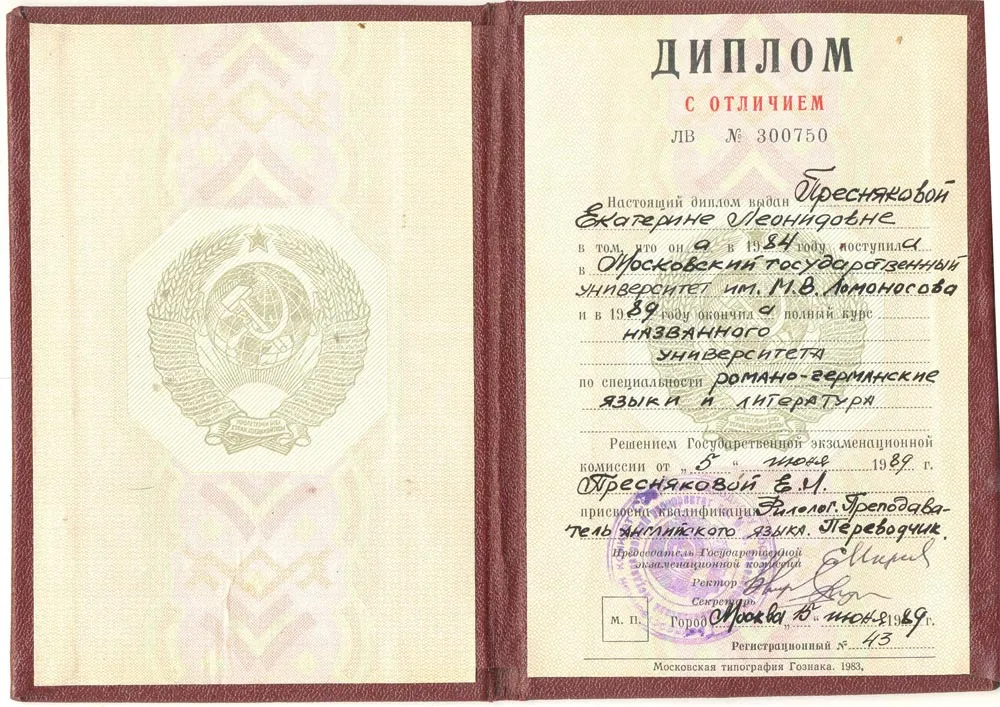 ДИПЛОМ
С ОТЛИЧИЕМ
ЛВ № 300750
Настоящий диплом выдан Пресняковой
Екатерине Леонидовне
в том, что он а в 1984 году поступила
в Московский государственный
университет им. М.В. Ломоносова
и в 1989 году окончил а полный курс
названного
университета
по специальности романо-германские
языки и литература
Решением Государственной экзаменационной
комиссии от „5“ июня 1989 г.
Пресняковой Е.Л.
присвоена квалификация Филолог. Преподава-
тель английского языка. Переводчик.
Председатель Государственной
экзаменационной комиссии
Ректор
Секретарь
М. П. Город Москва „15“ июня 1989 г.
Регистрационный № 43
Московская типография Гознака. 1983.